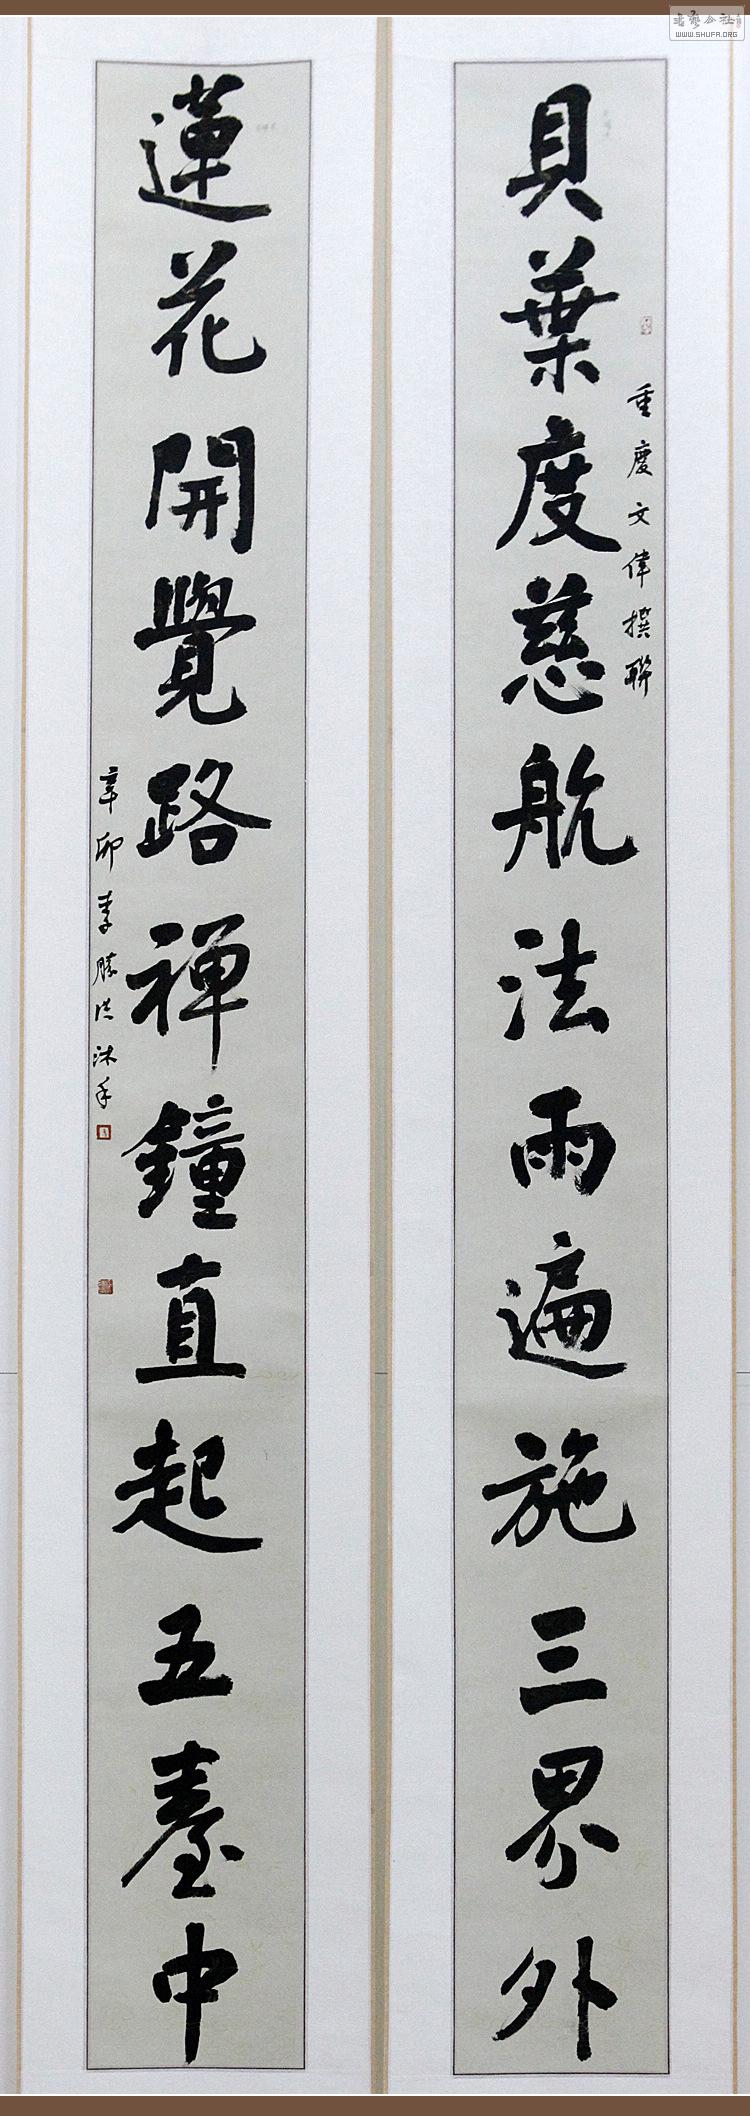 貝葉度慈航法雨遍施三界外
重慶文偉撰聯
蓮花開覺路禅鐘直起五臺中
辛卯李勝洪沐手
WWW.SHUFA.ORG